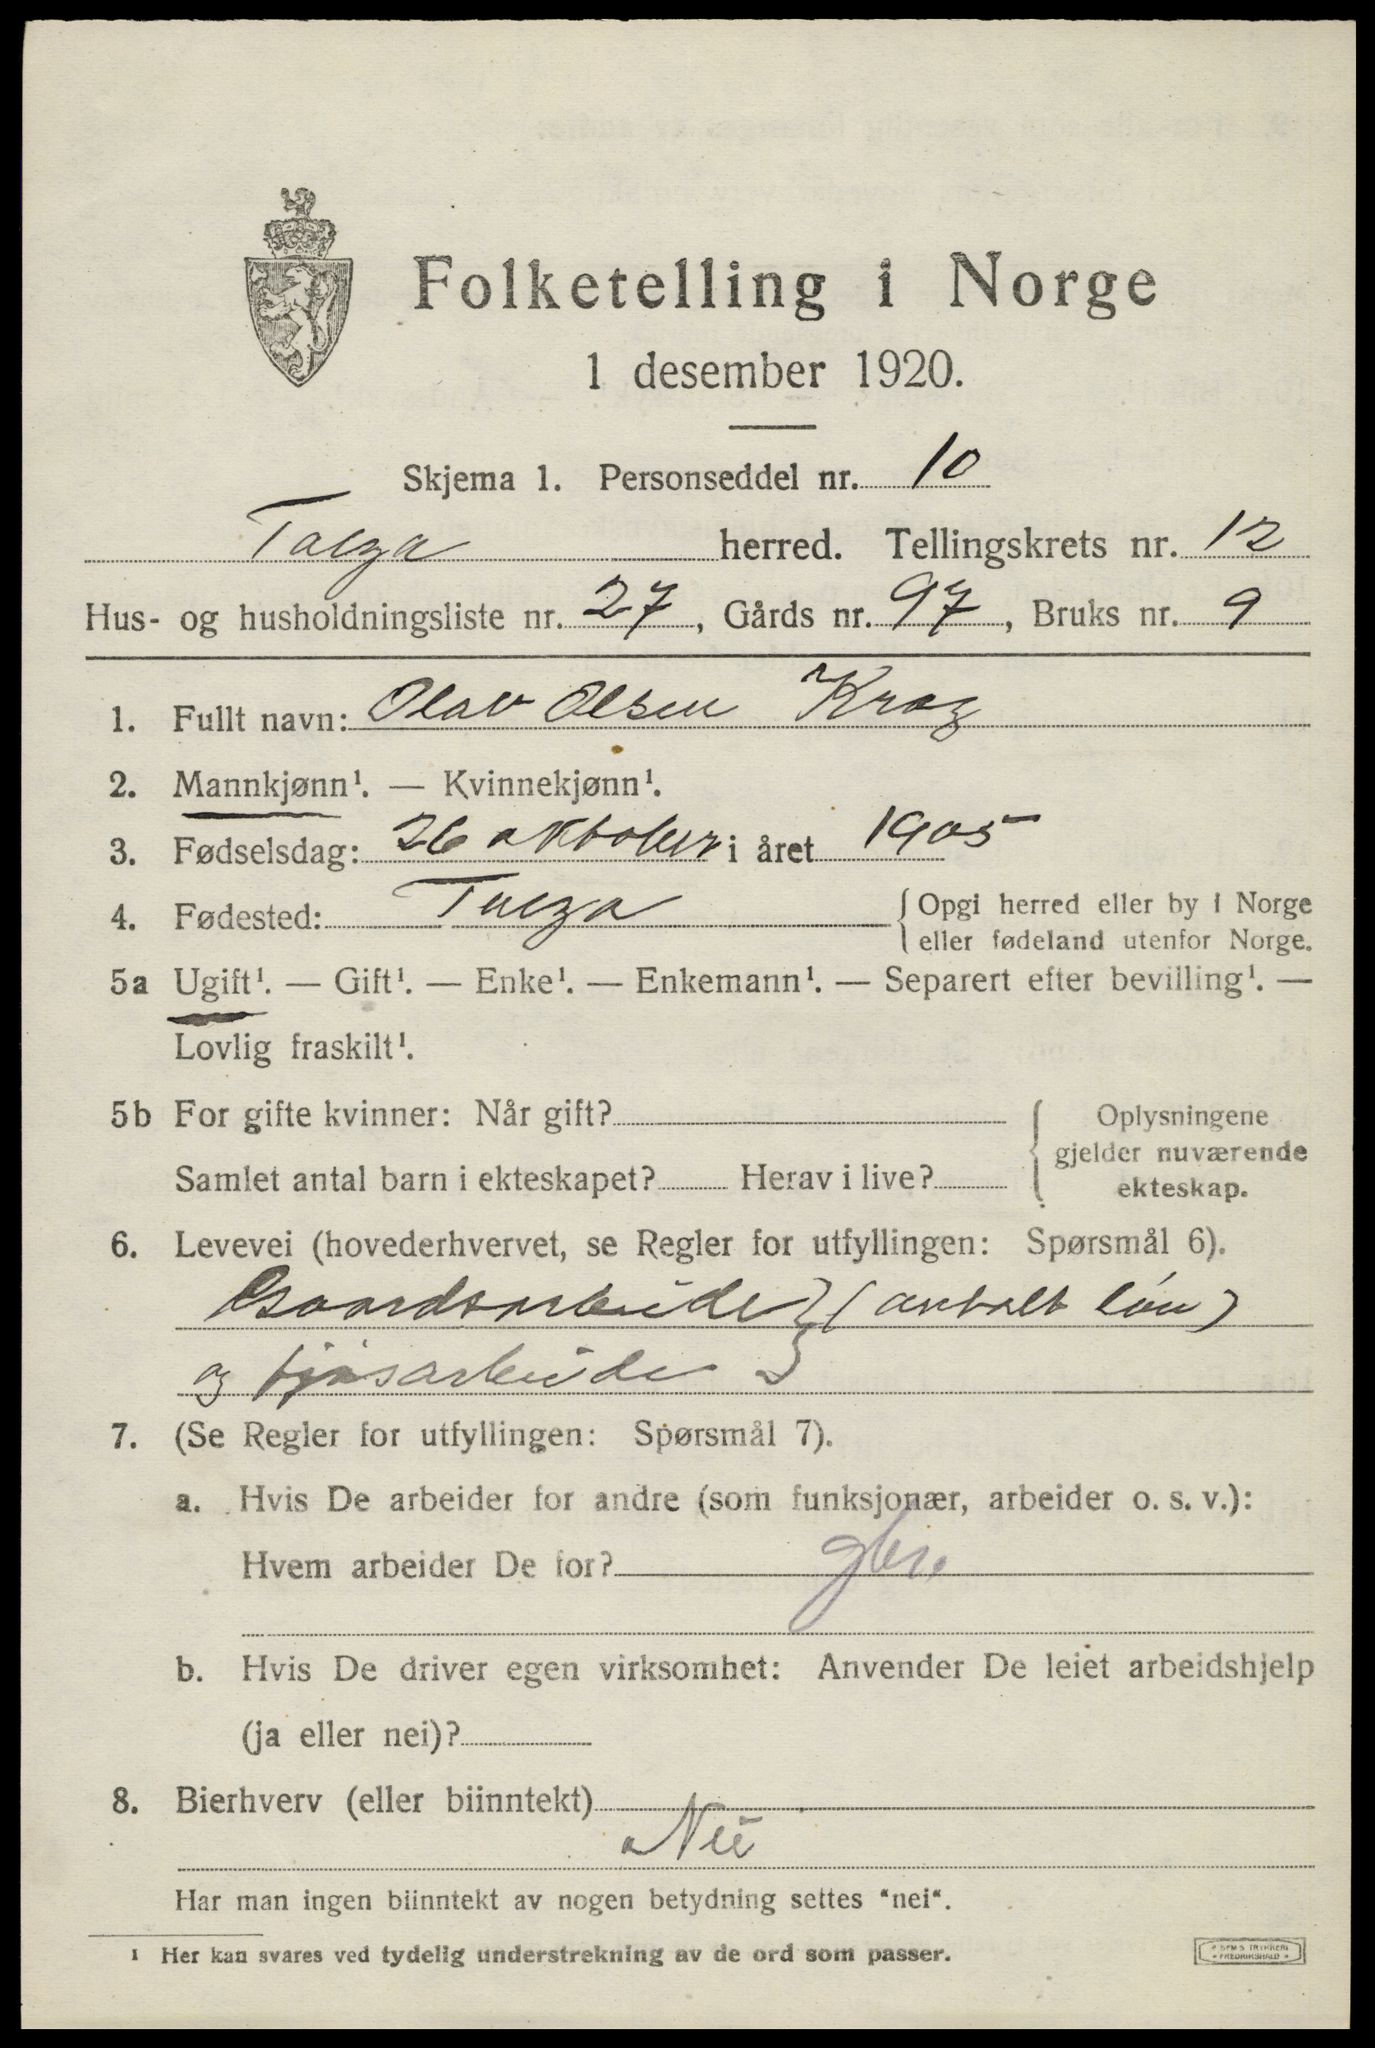 Folketelling i Norge
1 desember 1920.
Skjema 1. Personseddel nr. 10
herred. Tellingskrets nr. 12
Hus- og husholdningsliste nr. 27, Gårds nr. 97, Bruks nr. 9
1. Fullt navn: Olav Olsen Krog
2. Mannkjønn¹. — Kvinnekjønn¹.
3. Fødselsdag: 26 oktober i året 1905
4. Fødested: { Opgi herred eller by i Norge
eller fødeland utenfor Norge.
5a Ugift¹. — Gift¹. — Enke¹. — Enkemann¹. — Separert efter bevilling¹. —
Lovlig fraskilt¹.
5b For gifte kvinner: Når gift? { Oplysningene
gjelder nuværende
Samlet antal barn i ekteskapet? Herav i live?
ekteskap.
6. Levevei (hovederhvervet, se Regler for utfyllingen: Spørsmål 6).
Gaardsarbeide } (avtalt løn)
og fjøsarbeide }
7. (Se Regler for utfyllingen: Spørsmål 7).
a. Hvis De arbeider for andre (som funksjonær, arbeider o. s. v.):
Hvem arbeider De for? gbr.
b. Hvis De driver egen virksomhet: Anvender De leiet arbeidshjelp
(ja eller nei)?
8. Bierhverv (eller biinntekt)
Nei
Har man ingen biinntekt av nogen betydning settes "nei".
¹ Her kan svares ved tydelig understrekning av de ord som passer.
TRYKKERI
FREDRIKSHALD